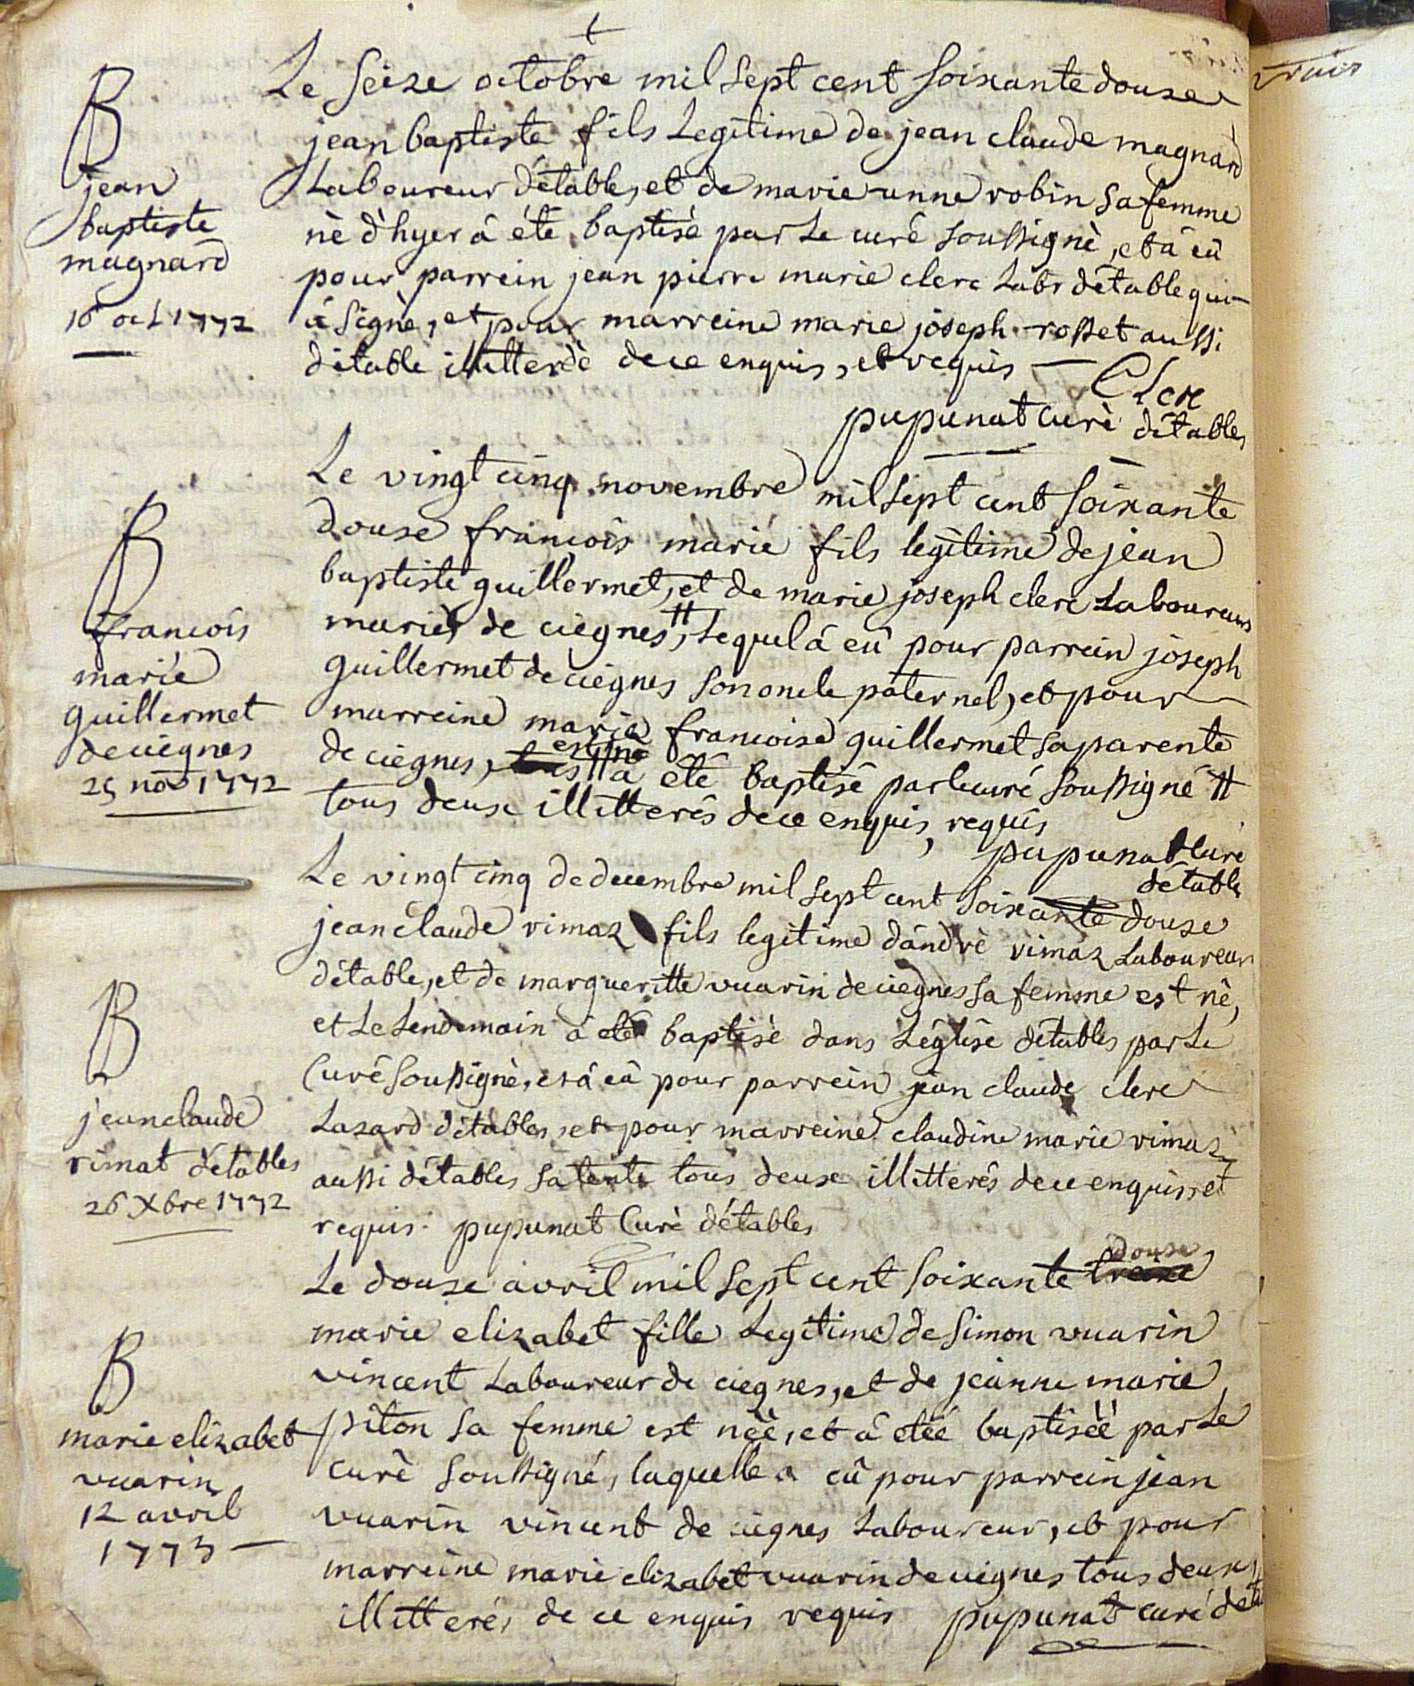 Le seize octobre mil sept cent soixante douze
jean baptiste fils Legitime de jean claude magnard
Laboureur détables, et de marie anne robin sa femme
nè d'hyer â étè baptisè par Le curè soussignè, et â eû
pour parrein jean pierre marie clerc Labr détable qui
â signè, et pour marreine marie joseph rosset aussi
détable illitterè de ce enquis, et requis
Clerc
pupunat curè détables
B
jean
baptiste
magnard
16 oct 1772
Le vingt cinq novembre mil sept cent soixante
douse francois marie fils legitime de jean
baptiste guillermet, et de marie joseph clerc Laboureurs
mariés de ciegnes, Lequel â eû pour parrein joseph
guillermet de ciegnes son oncle paternel, et pour
marreine marie francoise guillermet sa parente
de ciegnes, est né
â été baptisé par le curé soussigné
tous deux illitterés de ce enquis, requis
pupunat curé
détables
B
francois
marie
guillermet
de ciegnes
25 nov 1772
Le vingt cinq de decembre mil sept cent soixante douse
jean claude vimaz fils legitime dândrè vimaz Laboureur
détable, et de margueritte vuarin de ciegnes sa femme est nè,
et Le Lendemain â été baptisè dans L'église détables par Le
Curé soussignè, et â eû pour parrein jean claude clerc
Lazard détables, et pour marreine claudine marie vimaz
aussi détables sa tente tous deux illitterés de ce enquis, et
requis. pupunat Curè détables
B
jean claude
vimat détables
26 Xbre 1772
Le douze avril mil sept cent soixante treize
douse
marie elizabet fille Legitime de simon vuarin
vincent Laboureur de ciegnes, et de jeanne marie
piton sa femme est née, et â etée baptisée par Le
curè soussigné, laquelle a eû pour parrein jean
vuarin vincent de ciegnes Laboureur, et pour
marreine marie elizabet vuarin de ciegnes tous deux
illitterés de ce enquis requis pupunat curé déta
B
marie elizabet
vuarin
12 avril
1773